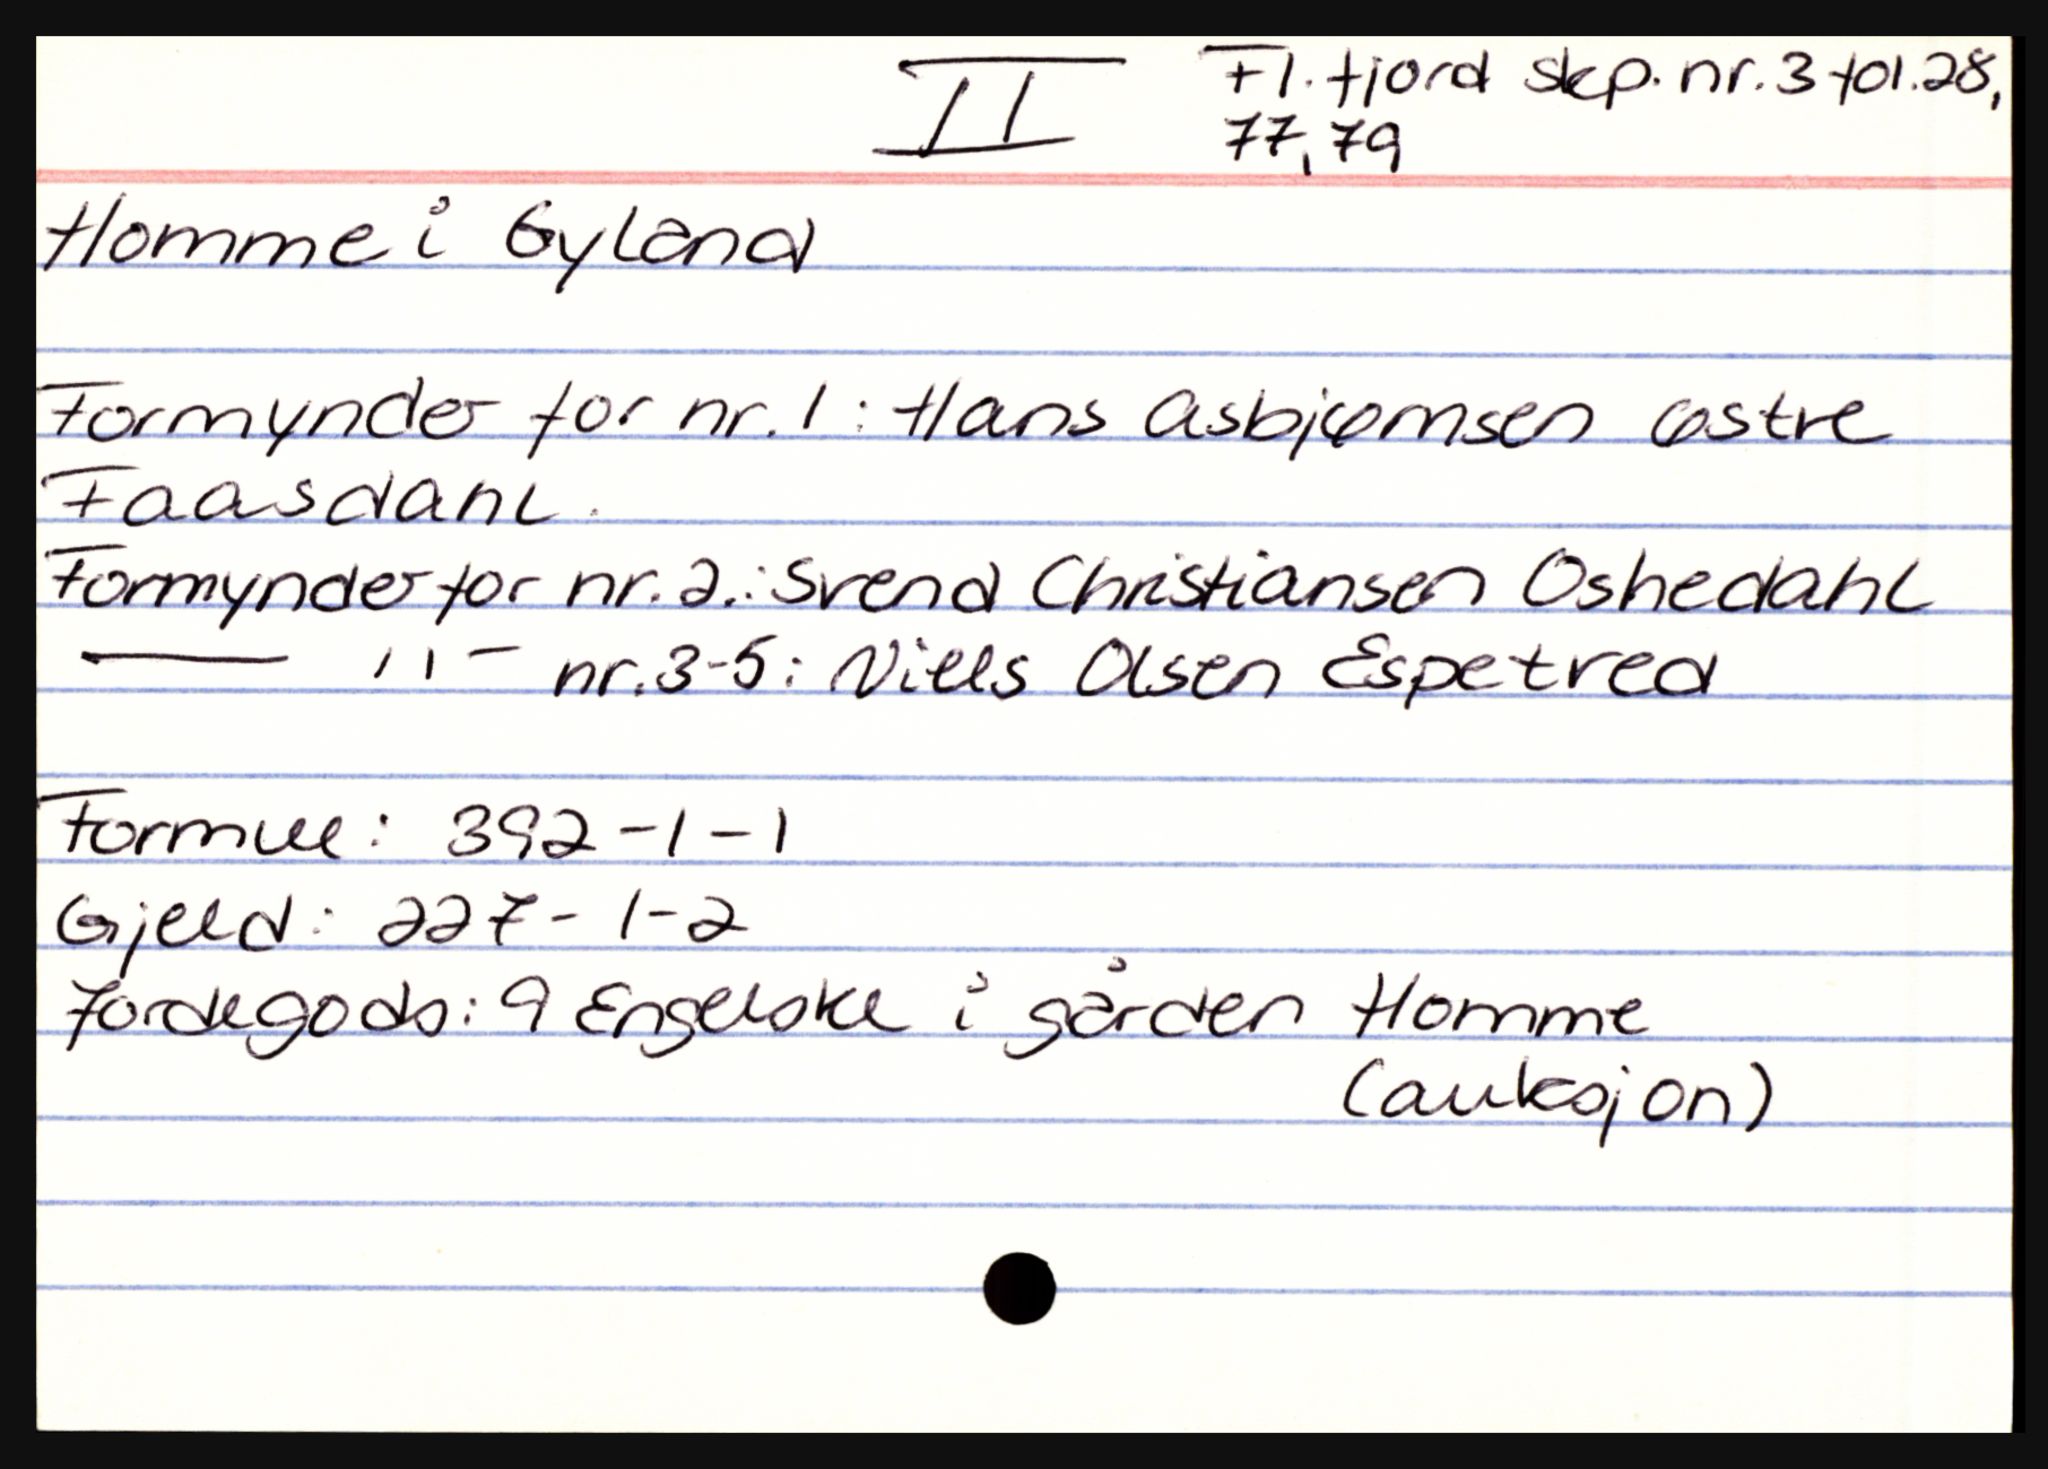 II Fl.fjord skp. nr. 3 fol. 28,
77, 79
Homme i Gyland
Formynder for nr. 1 : Hans Asbjørnsen østre
Faasdahl.
Formynder for nr. 2. : Svend Christiansen Oshedahl
— " — nr. 3-5 : Niels Olsen Espetred
Formue : 392 - 1 - 1
Gjeld : 227 - 1 - 2
Jordegods : 9 Engelske i gården Homme
(auksjon)